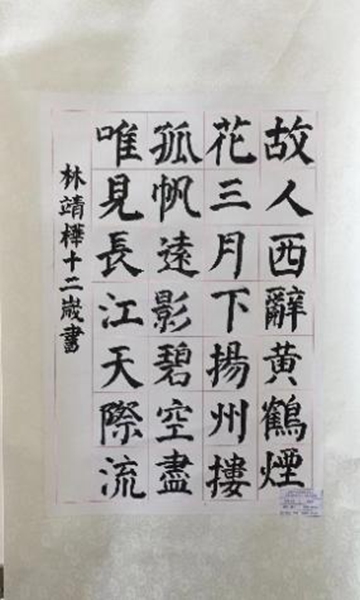 故人西辭黄鶴煙
花三月下揚州摟
孤帆遠影碧空盡
唯見長江天際流
林靖樺十二歲書